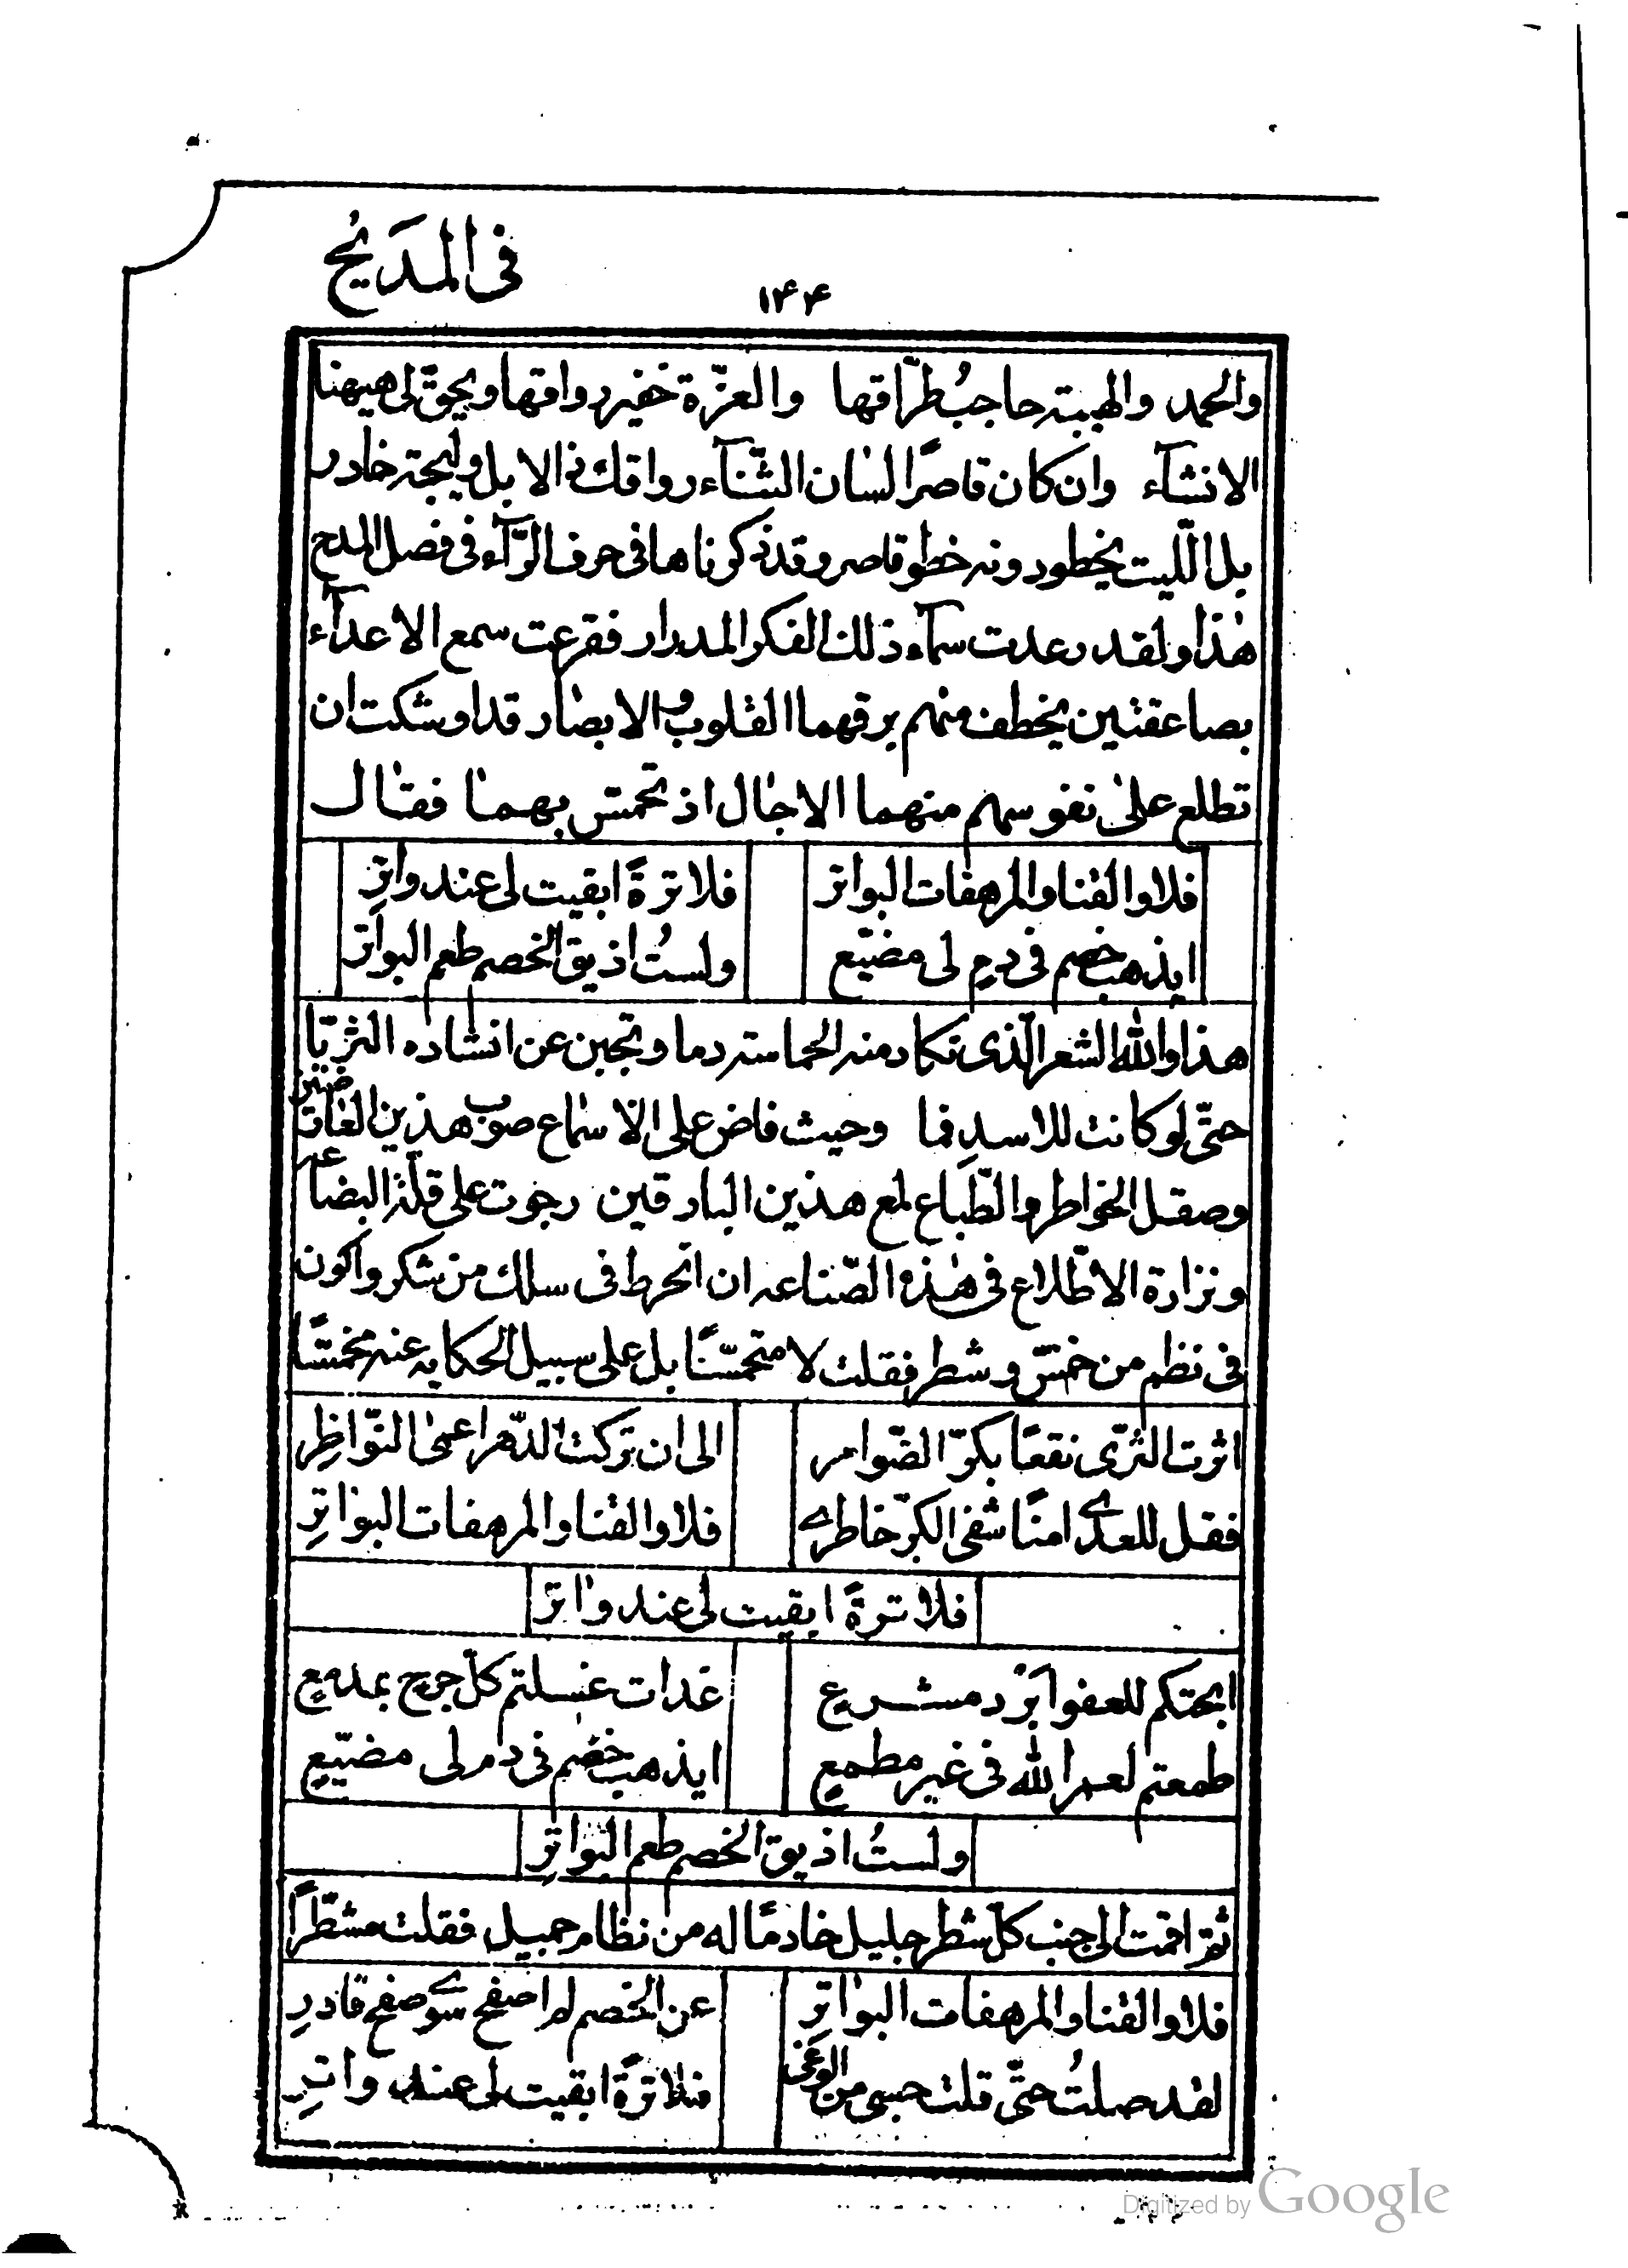 فی المدَیُح
۱۴۴
والحمد والهیبته حاجبُ طرّاقها والعزّة خفیر رواقها ویحقّ لی هیهنا
الانشآء وان کان قاصرًا لسان الثنّآء رواقك نے الابل ولیجته خادر
بل اللّیت یخطو دونه خطو قاصر وقد ذکرناها فی حرف الرّآء فی فصل المدح
هٰذا ولقد رعدت سمآء ذلك الفکر المدرار فقرعت سمع الاعدآء
بصاعقتین یخطف منهم برقهما القلوب والابصٰار قد اوشکت ان
تطلع علیٰ نفوسهم منهما الاجٰال اذ تحمّس بهمٰا فقٰال
فلا والقنا والمرهفات البواتر
فلا ترةً ابقیت لی عند واترِ
ایذهب خصم فی دمٍ لی مضیّع
ولستُ اذیق الخصم طعم البواتر
هذا والله الشعر الّذی تکاد منه الحماسته دما وتجبن عن انشاده الثریّا
حتّی لو کانت للاسدِ فما وحیث فاض علی الاسمٰاع صوب هذین الغٰامضین
وصقل الخواطر والطّباع لمع هذین البارقین رجوت علی قلّة البضاعه
ونزارة الاطّلاع فی هٰذه الصّناعه ان انخرط فی سلك من شکر واکون
فی نظم من خمّس وشطر فقلت لا متحمّسًا بل علی سبیل الحکایه عنه مخمّسًا
اثرت الثرّی نقعًا بکرّ الضّوامر
الی ان ترکت الدّهر اعمیٰ النّواظِر
فقل للعدےٰ امنًا شفی الکرّ خاطرے
فلا والقنا والمرهفات البوٰاترِ
فلا ترةً ابقیت لی عند وٰاترَ
ابحتکم للعفو ابَرْد مشرعٍ
غدات غسلتم کلّ جرحٍ بمدمعٍ
طمعتم لعمر الله فی غیر مطمعٍ
ایذهب خصم فی دم لی مضیّعٍ
ولستُ اذیق الخصم طعم البواترِ
ثم اقمت الی جنب کلّ شطر جلیل خادمًا له من نظام جمیل فقلت مشطّرًا
فلا والقنا والمرهفات البوٰاترِ
عن الخصم لم اصفح سوےٰ صفح قادرِ
لقد صلتُ حتّی قلت حسبی من الوغی
فلا ترةً ابقیت لی عند واترِ
Digitized by Google